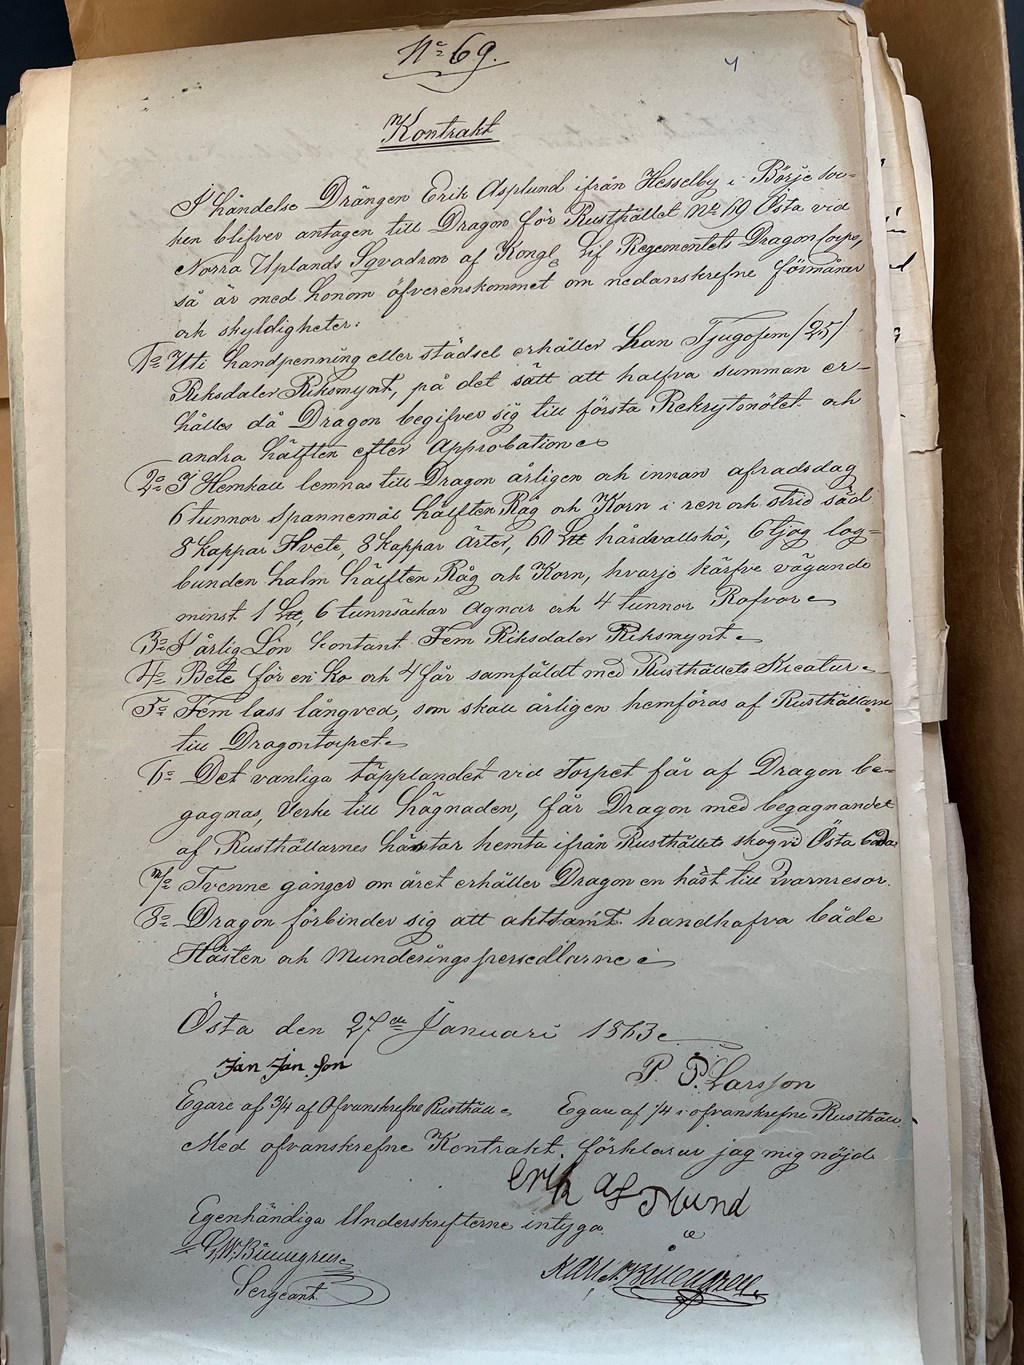 No 69.
4
Kontrakt
I händelse Drängen Erik Asplund ifrån Hesselby i Börje soc-
ken blifver antagen till Dragon för Rusthållet No 69 Östa vid
Norra Uplands Sqvadron af Kongl. Lif Regementets Dragon Corps,
så är med honom öfverenskommet om nedanskrefne förmåner
och skyldigheter:
1o Uti handpenning eller städsel erhåller han Tjugofem /25/
Riksdaler Riksmynt, på det sätt att halfva summan er-
hålles då Dragon begifver sig till första Rekrytmötet och
andra hälften efter Approbation
2o I Hemkall lemnas till Dragon årligen och innan afradsdag
6 tunnor Spannemål hälften Råg och Korn i ren och strid säd
8 kappar Hvete, 8 kappar Ärter, 60 L℔ hårdvallshö, 6 tjog log-
bunden halm hälften Råg och Korn, hvarje kärfve vägande
minst 1 L℔, 6 tunnsäckar Agnar och 4 tunnor Rofvor
3o I årlig Lön kontant Fem Riksdaler Riksmynt
4o Bete för en Ko och 4 får samfäldt med Rusthållets Kreatur
5o Fem lass långved, som skall årligen hemföras af Rusthållarne
till Dragontorpet
6o Det vanliga täpplandet vid Torpet får af Dragon be-
gagnas, Verke till hägnaden, får Dragon med begagnandet
af Rusthållarnes hästar hemta ifrån Rusthållets skog vid Östa
7o Tvenne gånger om året erhåller Dragon en häst till Qvarnresor.
8o Dragon förbinder sig att aktsamt handhafva både
Hästen och Munderingspersedlarne
Östa den 27de Januari 1863
Jan Jan Son
P. P. Larsson
Egare af 3/4 af Ofvanskrefne Rusthåll
Egare af 1/4 i ofvanskrefne Rusthåll
Med ofvanskrefne Kontrakt, förklarar jag mig nöjd
Erik As Plund
Egenhändiga Underskrifterne intyga
Sergeant